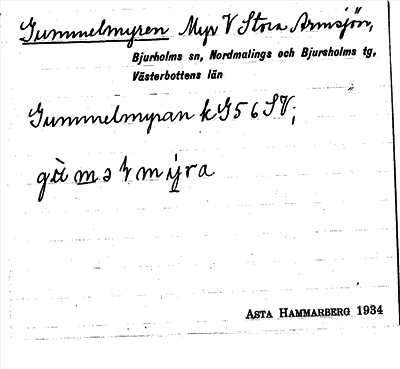 Gummelmyren Myr V Stora Armsjön,
Bjurholms sn, Nordmalings och Bjursholms tg,
Västerbottens län
Gummelmyran k G56 SV;
ASTA HAMMARBERG 1934